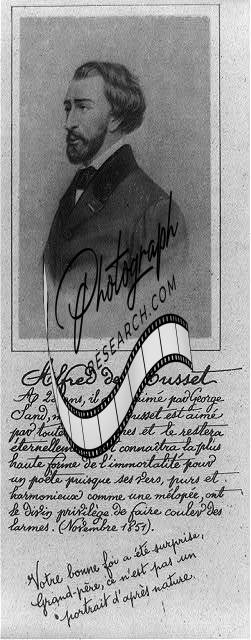 Photograph
RESEARCH.COM
Alfred de Musset
A 2 ans, il aimé par George
Sand, Musset est aimé
par toute et le restera
éternellem connaîtra la plus
haute forme de l'immortalité pour
un poète puisque ses vers, purs et
harmonieux comme une mélopée, ont
le divin privilège de faire couler des
larmes. (Novembre 1851).
Notre bonne foi a été surprise,
Grand-père, ce n'est pas un
portrait d'après nature
!